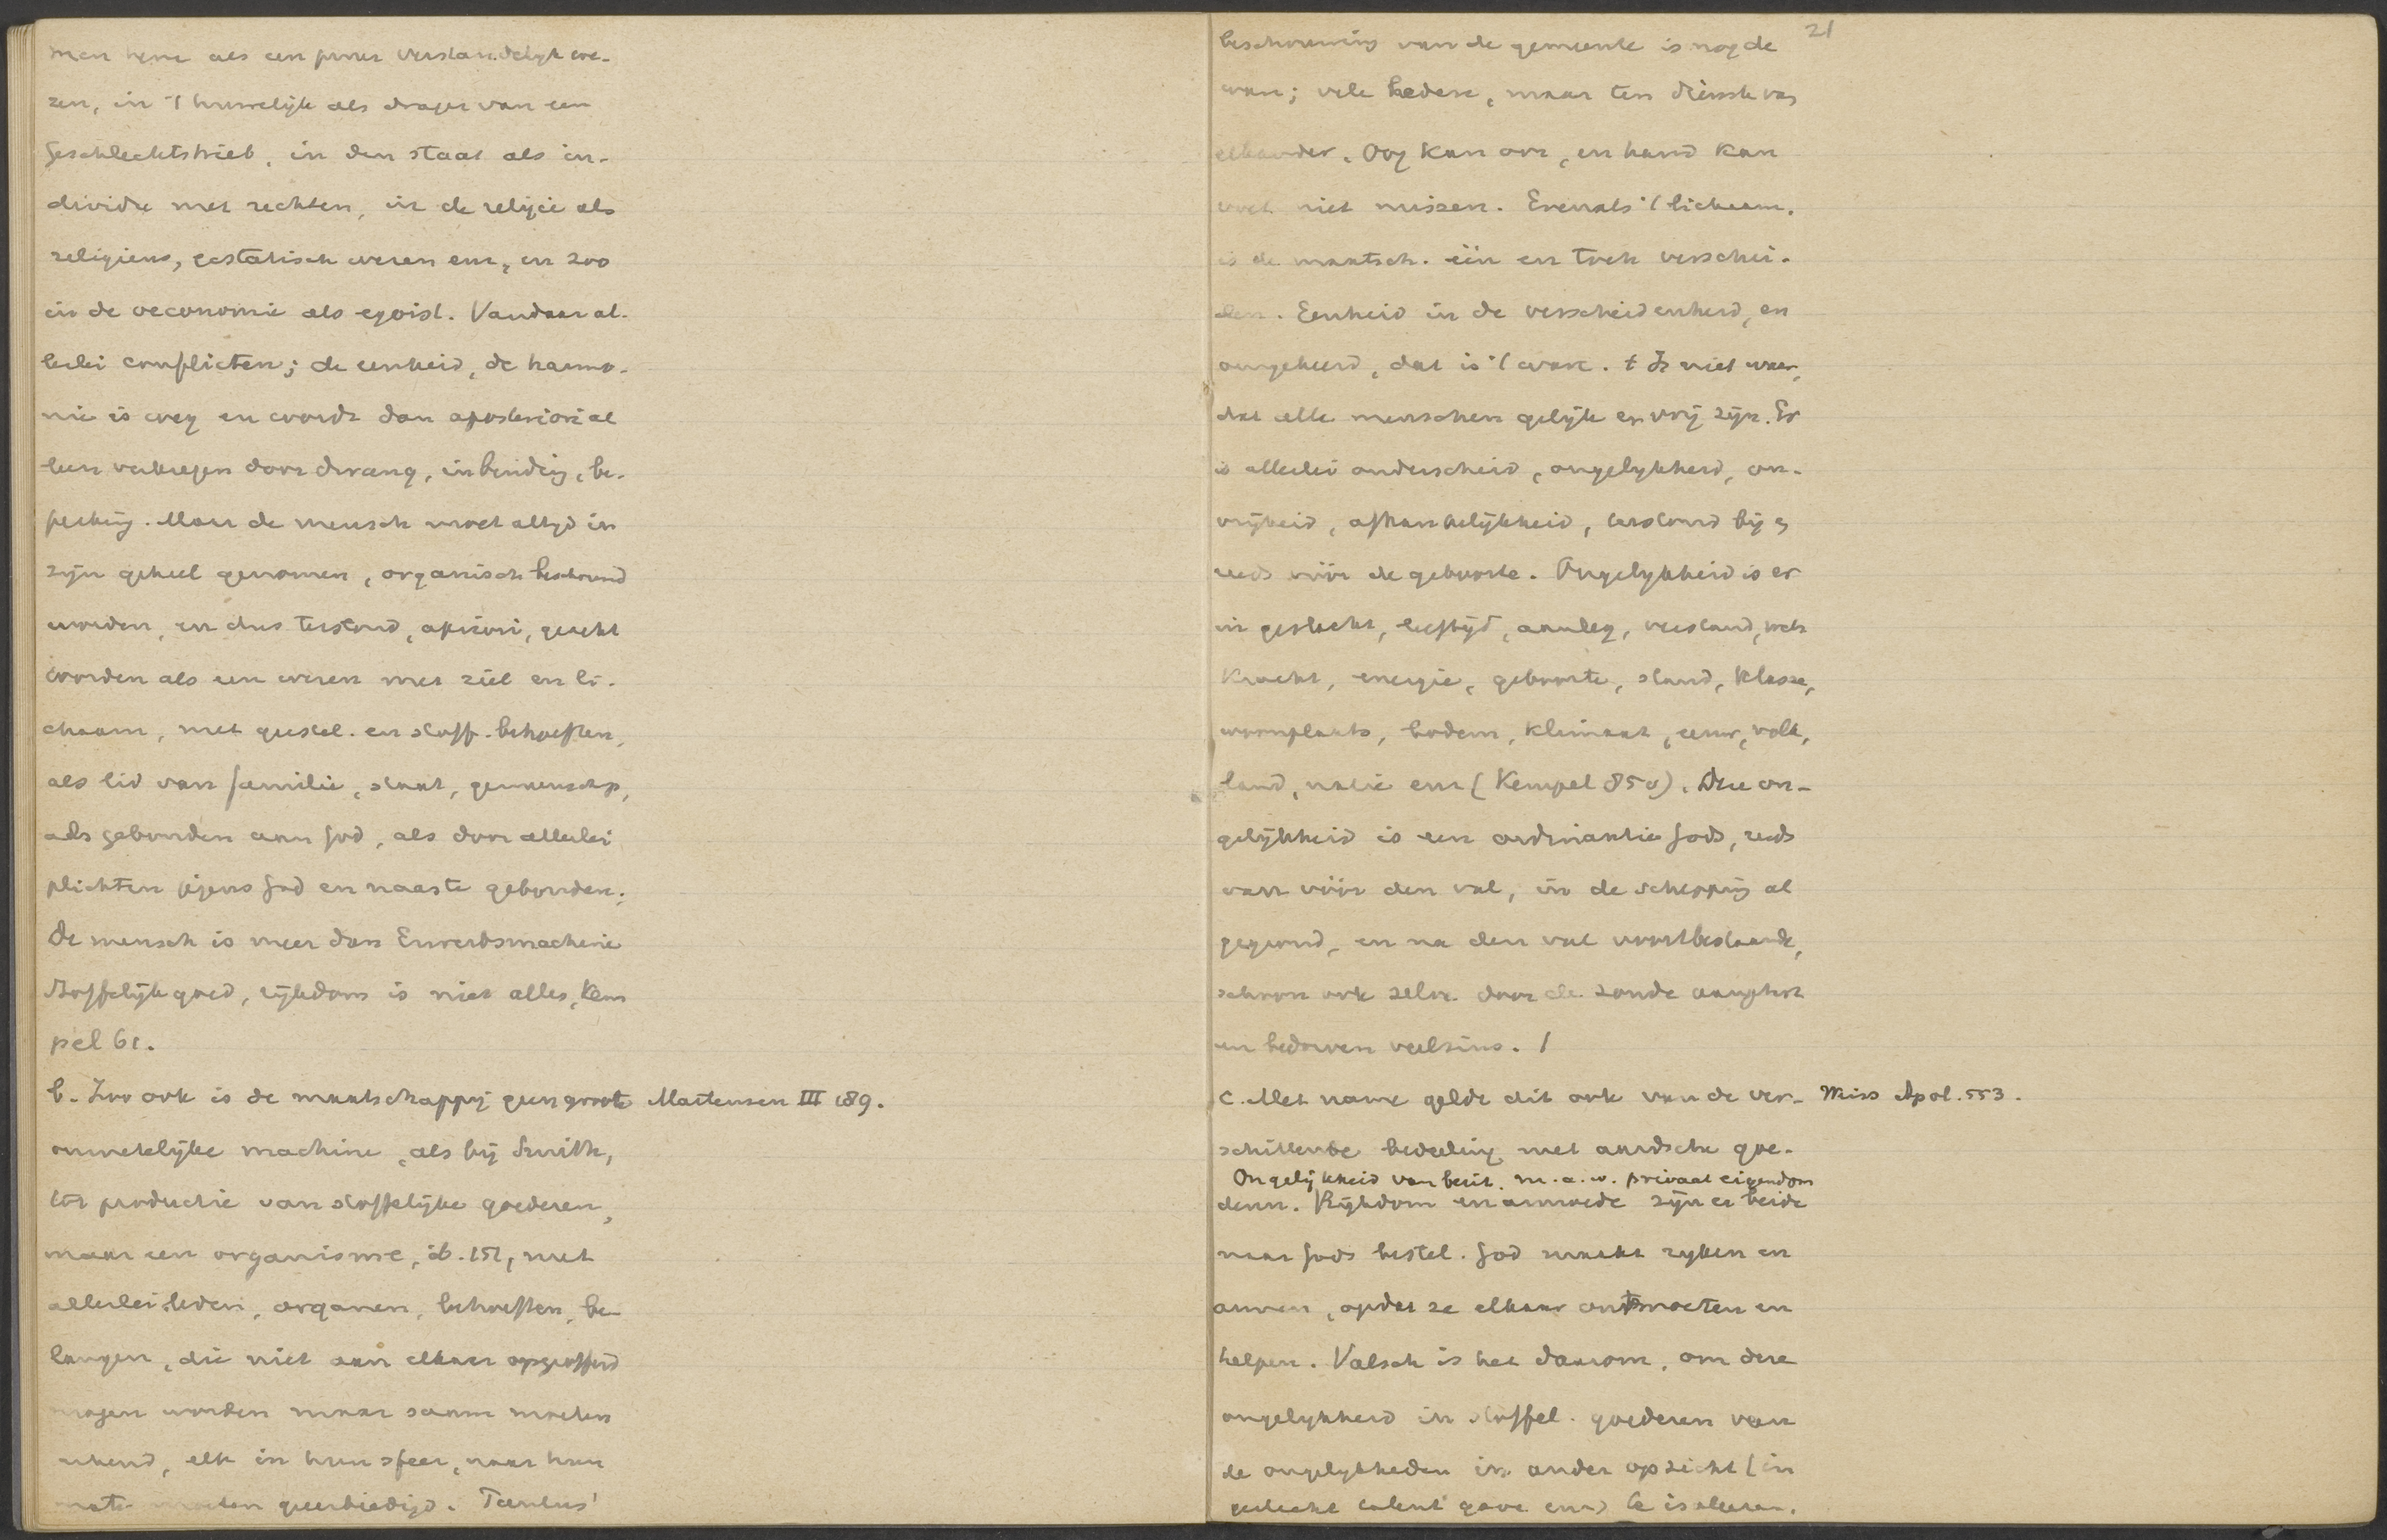 men hem als een puur verstandelijk we-
zen, in 't huwelijk als drager van een
geschlechtstrieb, in den staat als in-
dividu met rechten, in de religie als
religieus, extatisch wezen enz., en zoo
in de oeconomie als egoist. Vandaar al-
lerlei conflicten; de eenheid, de harmo-
nie is weg en wordt dan aposteriori al
leen verkregen door dwang, inbinding, be-
perking. Maar de mensch moet altijd in
zijn geheel genomen, organisch beschouwd
worden, en dus terstond, apriori, geacht
worden als een wezen met ziel en li-
chaam, met geestel. en stoff. behoeften,
als lid van familie, staat, gemeenschap,
als gebonden aan God, als door allerlei
plichten jegens God en naaste gebonden.
De mensch is meer dan Erwerbsmachine
Stoffelijk goed, rijkdom is niet alles, Kem
pel 61.
b. Zoo ook is de maatschappij geen groote
Martensen III 189.
onmetelijke machine, als bij Smith,
tot productie van stoffelijke goederen,
maar een organisme, ib. 151, met
allerlei leden, organen, behoeften, be-
langen, die niet aan elkaar opgeofferd
mogen worden maar saam moeten
, elk in hun sfeer, naar hun
mate moeten geeerbiedigd. Paulus'
21
beschouwing van de gemeente is nog de
ware; vele leden, maar ten dienste van
elkander. Oog kan oor, en hand kan
voet niet missen. Evenals 't lichaam,
is de maatsch. één en toch verschei-
den. Eenheid in de verscheidenheid, en
omgekeerd, dat is 't ware. t Is niet waar,
dat alle menschen gelijk en vrij zijn. Er
is allerlei onderscheid, ongelijkheid, on-
vrijheid, afhankelijkheid, terstond bij en
reeds vóór de geboorte. Ongelijkheid is er
in geslacht, leeftijd, aanleg, verstand,
kracht, energie, geboorte, stand, klasse,
woonplaats, bodem, klimaat, eeuw, volk,
land, natie enz (Kempel 850). Deze on-
gelijkheid is een ordinantie Gods, reeds
van vóór den val, in de schepping al
gegrond, en na den val voortbestaande,
schoon ook zelve door de zonde aangetast
en bedorven veelszins. /
c. Met name geldt dit ook van de ver-
Miss Apol. 553.
schillende bedeeling met aardsche goe-
Ongelijkheid van bezit. m.a.w. privaat eigendom
deren. Rijkdom en armoede zijn er beide
naar Gods bestel. God maakt rijken en
armen, opdat ze elkaar ontmoeten en
helpen. Valsch is het daarom, om deze
ongelijkheid in stoffel. goederen van
de ongelijkheden in ander opzicht (in
geslacht talent gave enz) te isoleeren.